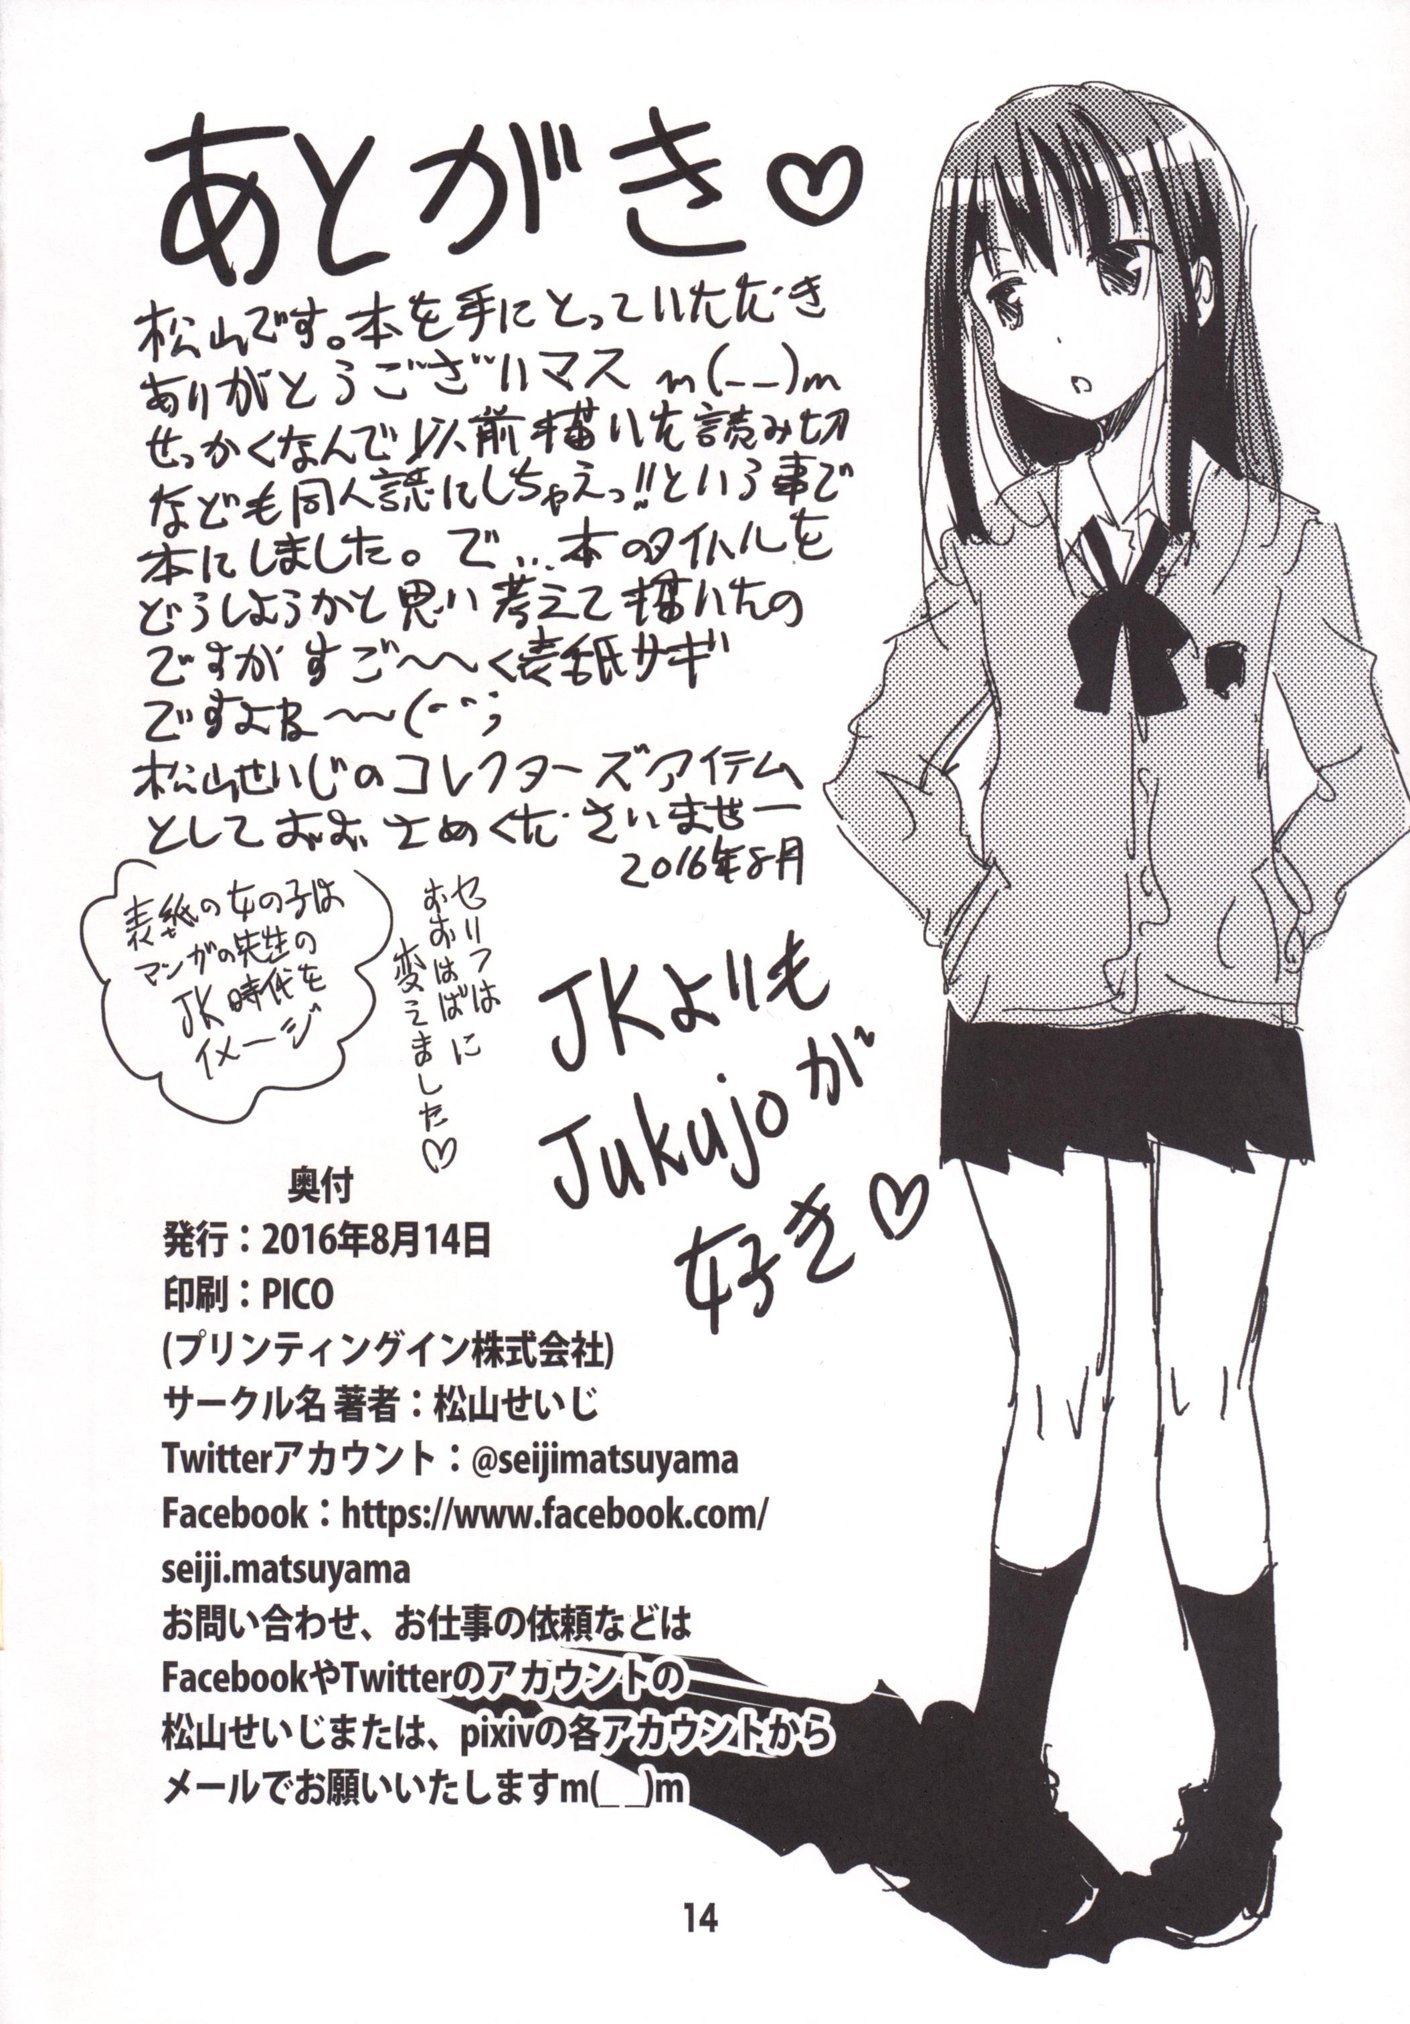 あとがき♡
松山です。本を手にとっていただき
ありがとうございマス m(_ _)m
せっかくなんで以前描いた読み切
なども同人誌にしちゃえっ!!という事で
本にしました。で…本のタイトルを
どうしようかと思い考えて描いたの
ですがすご〜〜く表紙サギ
ですよね〜〜(--;
松山せいじのコレクターズアイテム
としておおさめくださいませー
2016年8月
表紙の女の子は
マンガの先生の
JK時代を
イメージ
セリフは
おおはばに
変えました♡
JKよりも
Jukujoが
好き♡
奥付
発行：2016年8月14日
印刷：PICO
(プリンティングイン株式会社)
サークル名 著者：松山せいじ
Twitterアカウント：@seijimatsuyama
Facebook：https://www.facebook.com/
seiji.matsuyama
お問い合わせ、お仕事の依頼などは
FacebookやTwitterのアカウントの
松山せいじまたは、pixivの各アカウントから
メールでお願いいたしますm(_ _)m
14